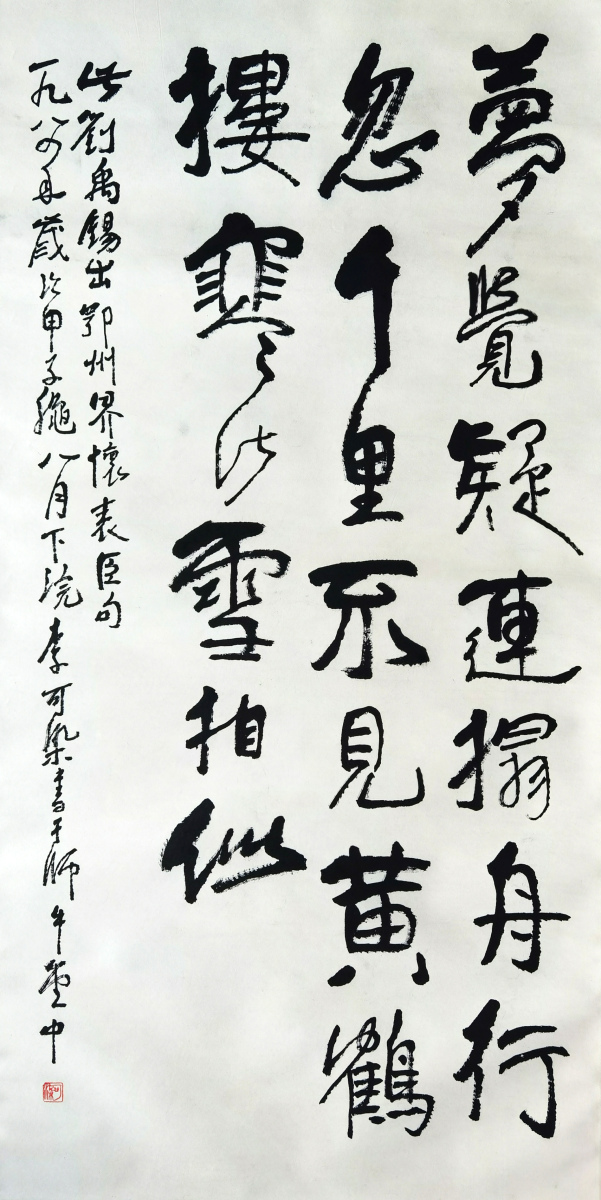 夢覺疑連榻舟行
忽千里不見黄鶴
樓寒沙雪相似
此劉禹錫出鄂州界懷表臣句
一九八四年歲次甲子龝八月下浣李可染書于師牛堂中
可染